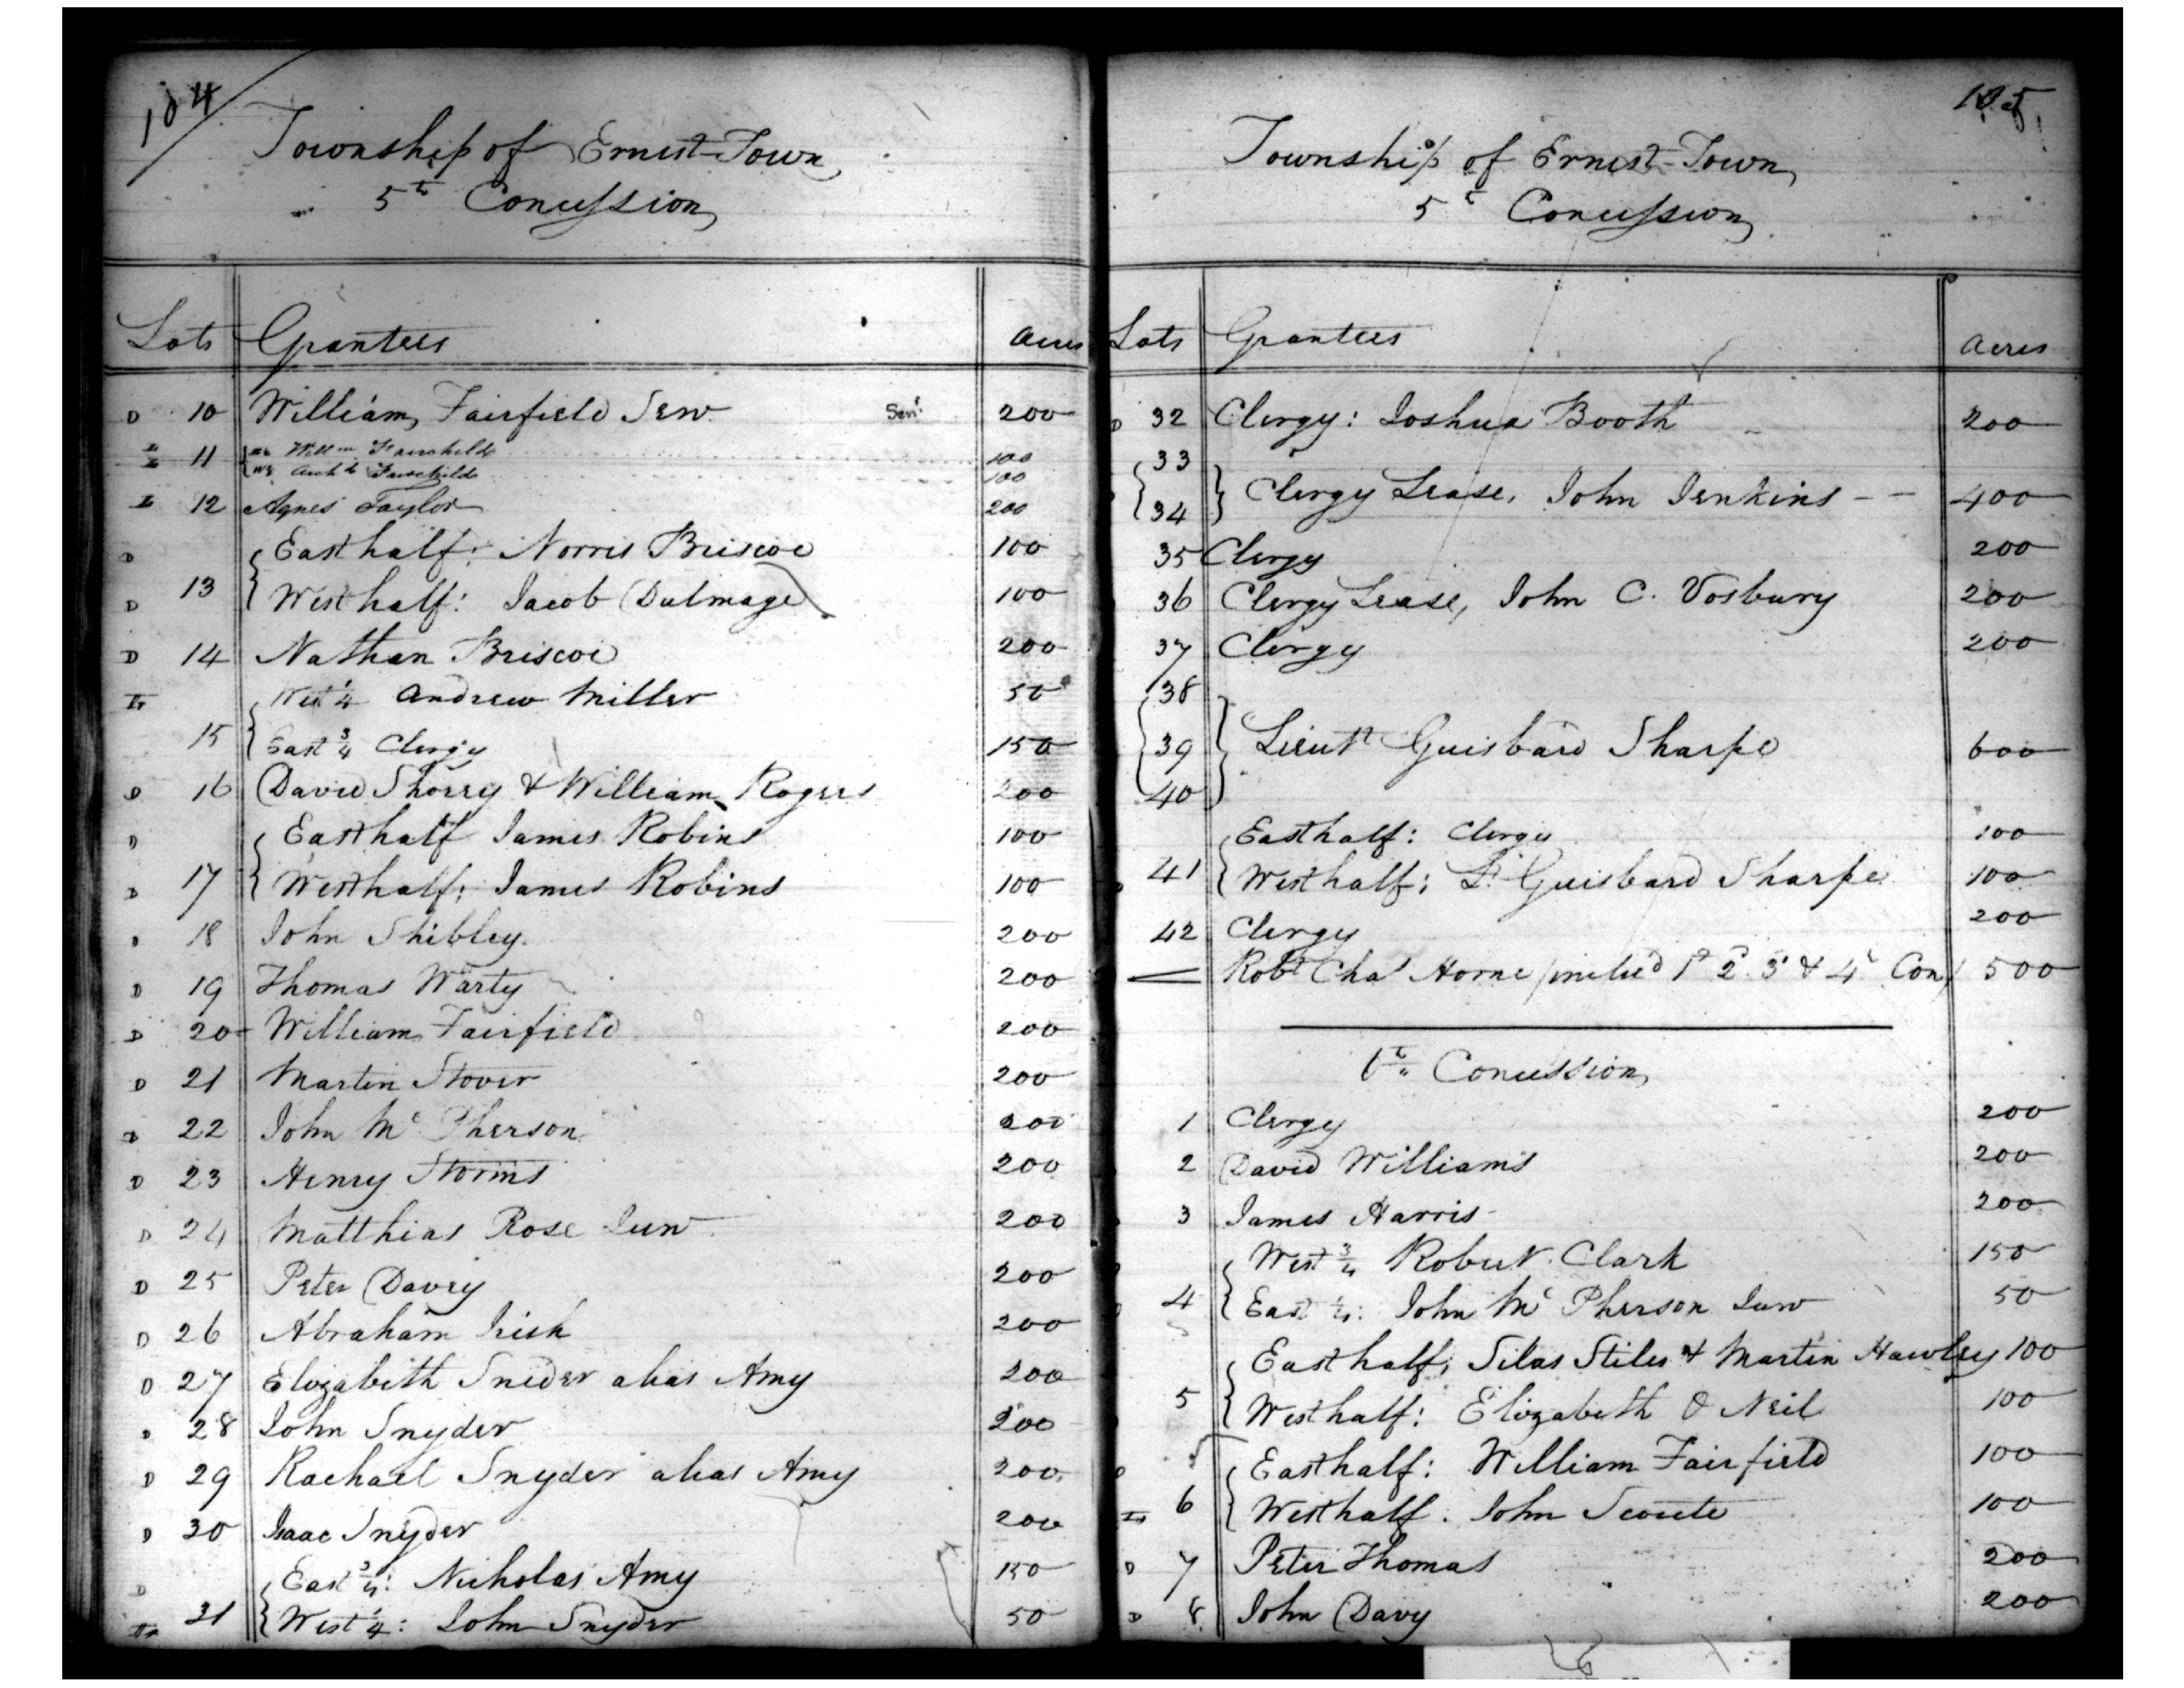 104
Township of Ernest Town
5th Concession
Lots Grantees Acres
D 10 William Fairfield Sen Senr 200
11 Willm Fairchilds 100
Archd Fairchilds 100
12 Agnes Taylor 200
D East half: Norris Briscoe 100
D 13 West half: Jacob Dulmage 100
D 14 Nathan Briscoe 200
West 1/4 Andrew Miller 50
15 East 3/4 Clergy 150
D 16 David Shorey & William Rogers 200
D East half James Robins 100
D 17 West half: James Robins 100
D 18 John Shibley 200
D 19 Thomas Warty 200
D 20 William Fairfield 200
D 21 Martin Stover 200
D 22 John Mc Pherson 200
D 23 Henry Storms 200
D 24 Matthias Rose Jun 200
D 25 Peter Davey 200
D 26 Abraham Irish 200
D 27 Elizabeth Snider alias Amy 200
D 28 John Snyder 200
D 29 Rachael Snyder alias Amy 200
D 30 Isaac Snyder 200
D East 3/4: Nicholas Amy 150
31 West 1/4: John Snyder 50
105
Township of Ernest Town
5th Concession
Lots Grantees Acres
D 32 Clergy: Joshua Booth 200
33
34 Clergy Lease, John Jenkins 400
35 Clergy 200
36 Clergy Lease, John C. Vosbury 200
37 Clergy 200
38
39 Lieut Guisbard Sharpe 600
40
East half: Clergy 100
41 West half: Lt Guisbard Sharpe 100
42 Clergy 200
Robt Chas Horne includ 1st 2d 3d & 4th Con 500
6th Concession
1 Clergy 200
2 David Williams 200
3 James Harris 200
West 3/4 Robert Clark 150
4 East 1/4: John Mc Pherson Jun 50
East half, Silas Stiles & Martin Hawley 100
5 West half: Elizabeth O Neil 100
East half: William Fairfield 100
6 West half: John Scoute 100
D 7 Peter Thomas 200
D 8 John Davy 200